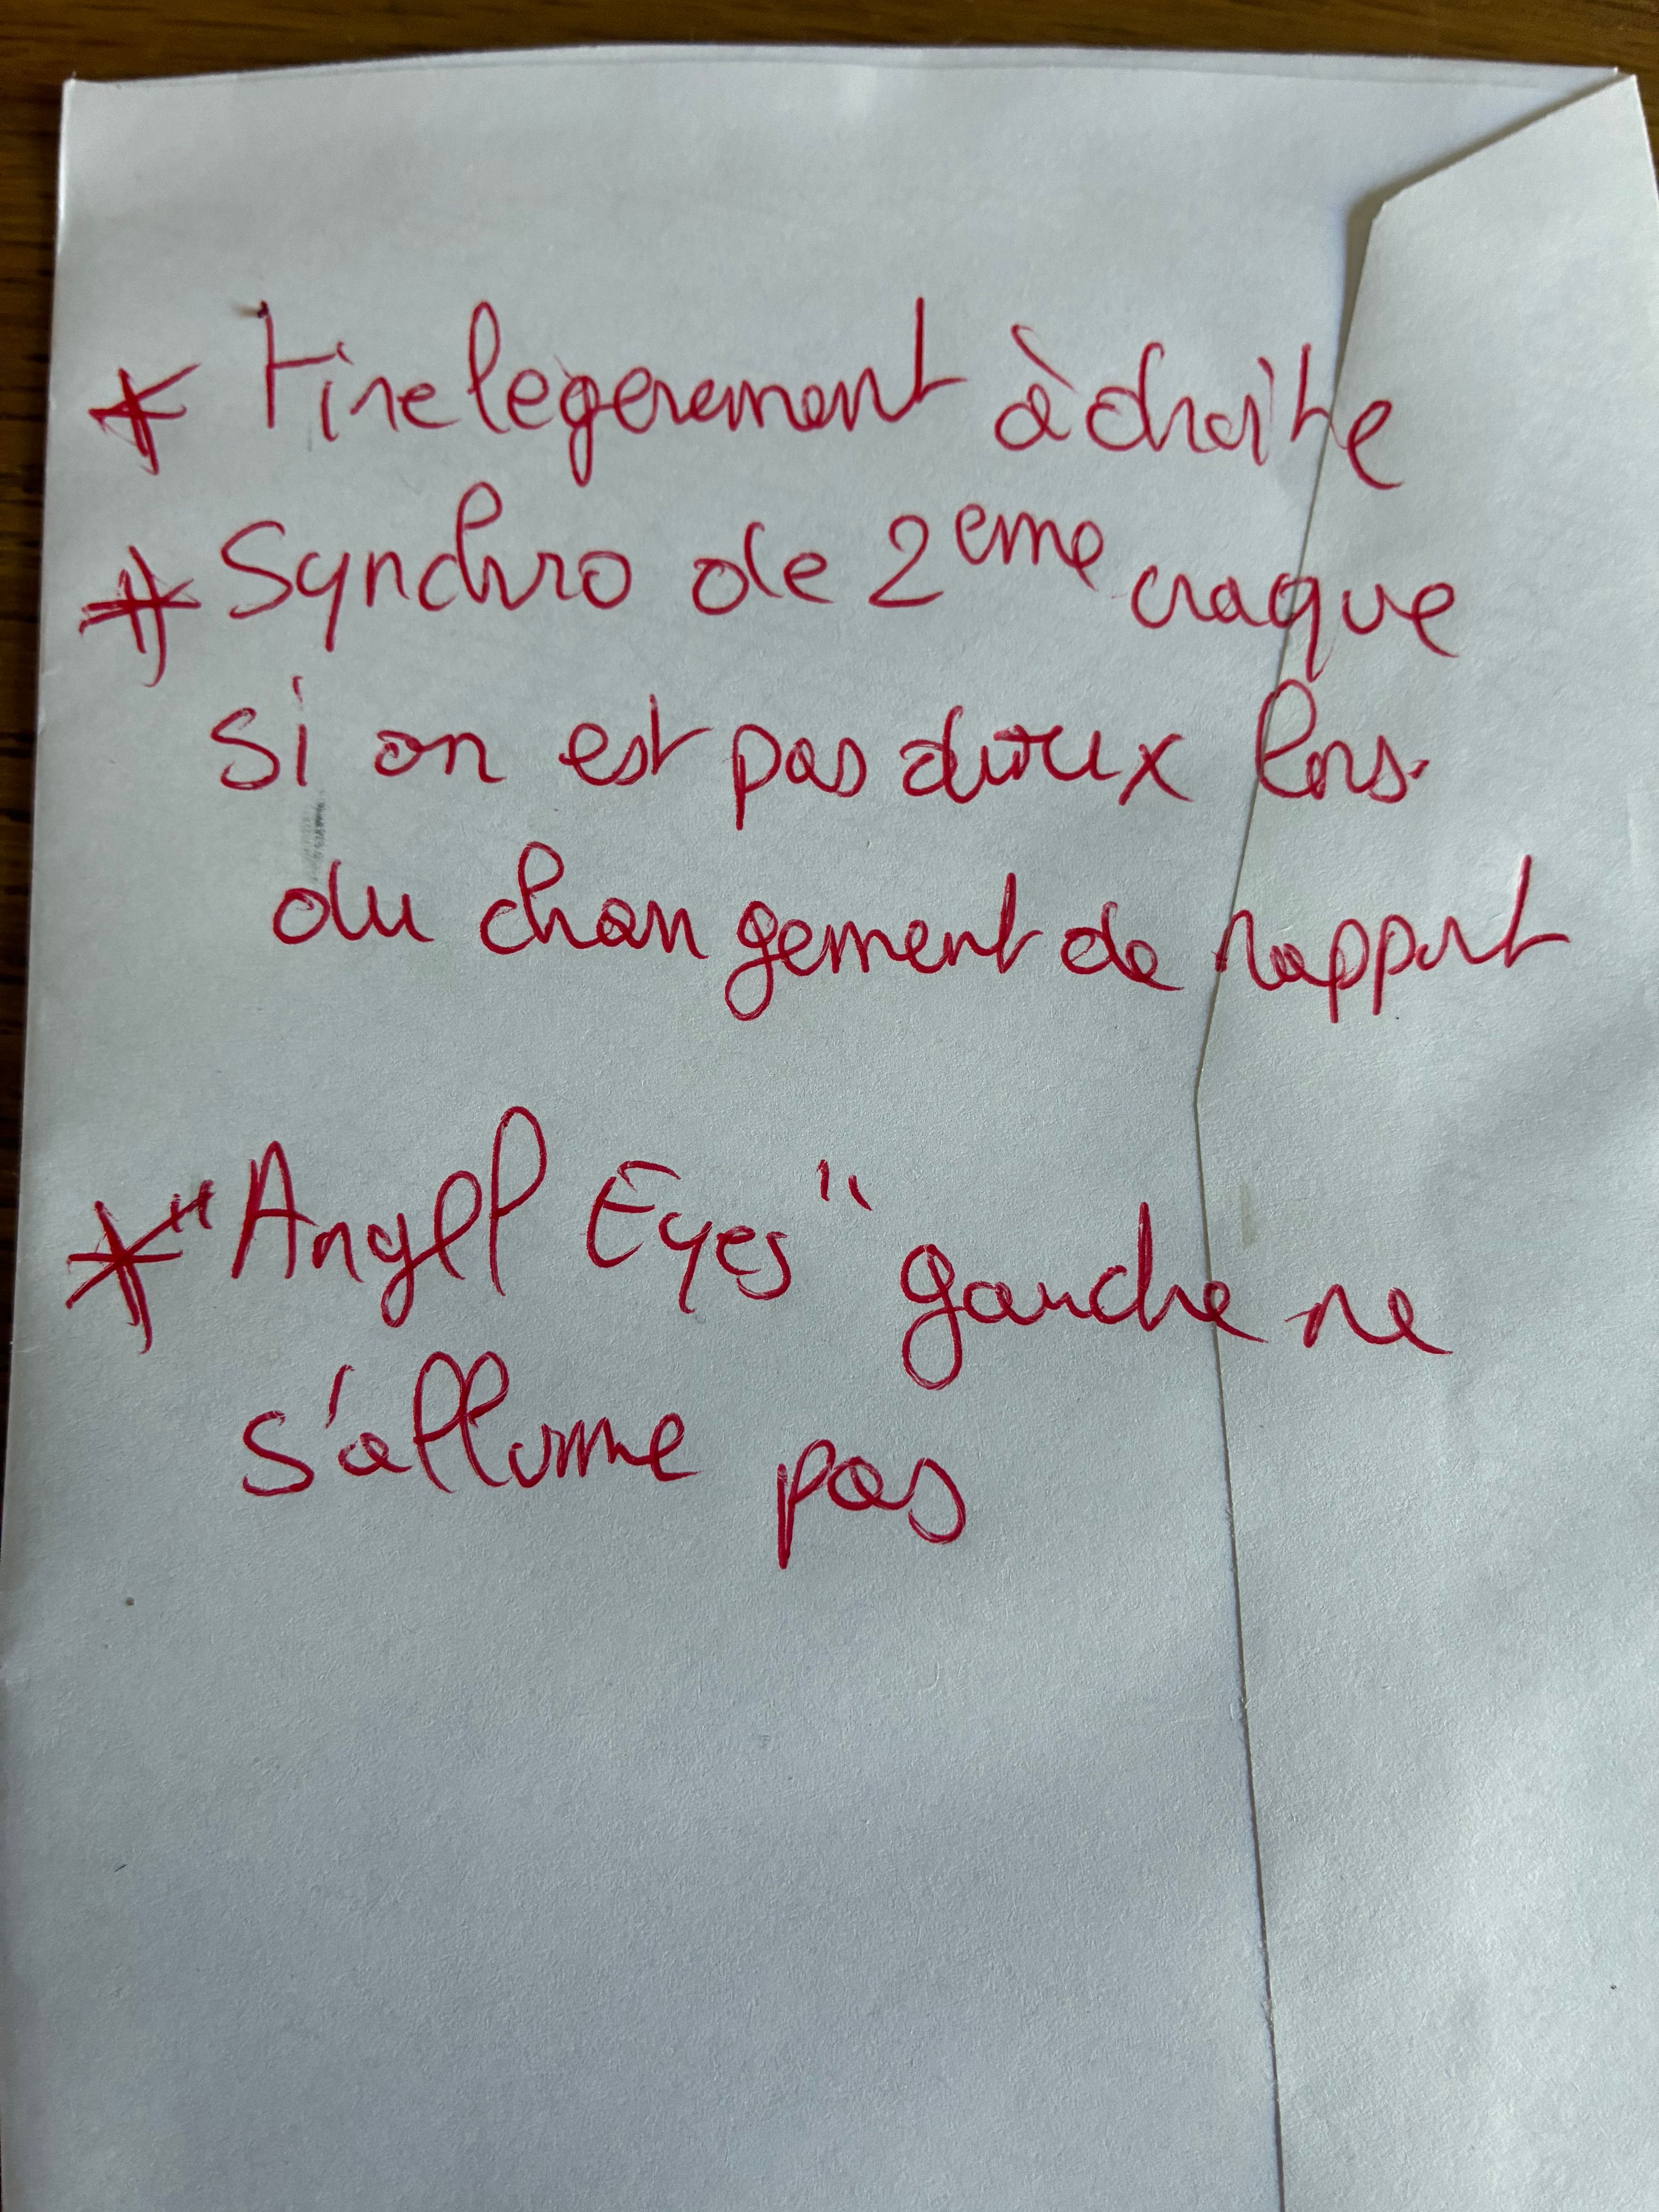 * Tire legerement à droite
* Synchro de 2eme craque
si on est pas doux lors
du changement de rapport
* "Angel Eyes" gauche ne
s'allume pas